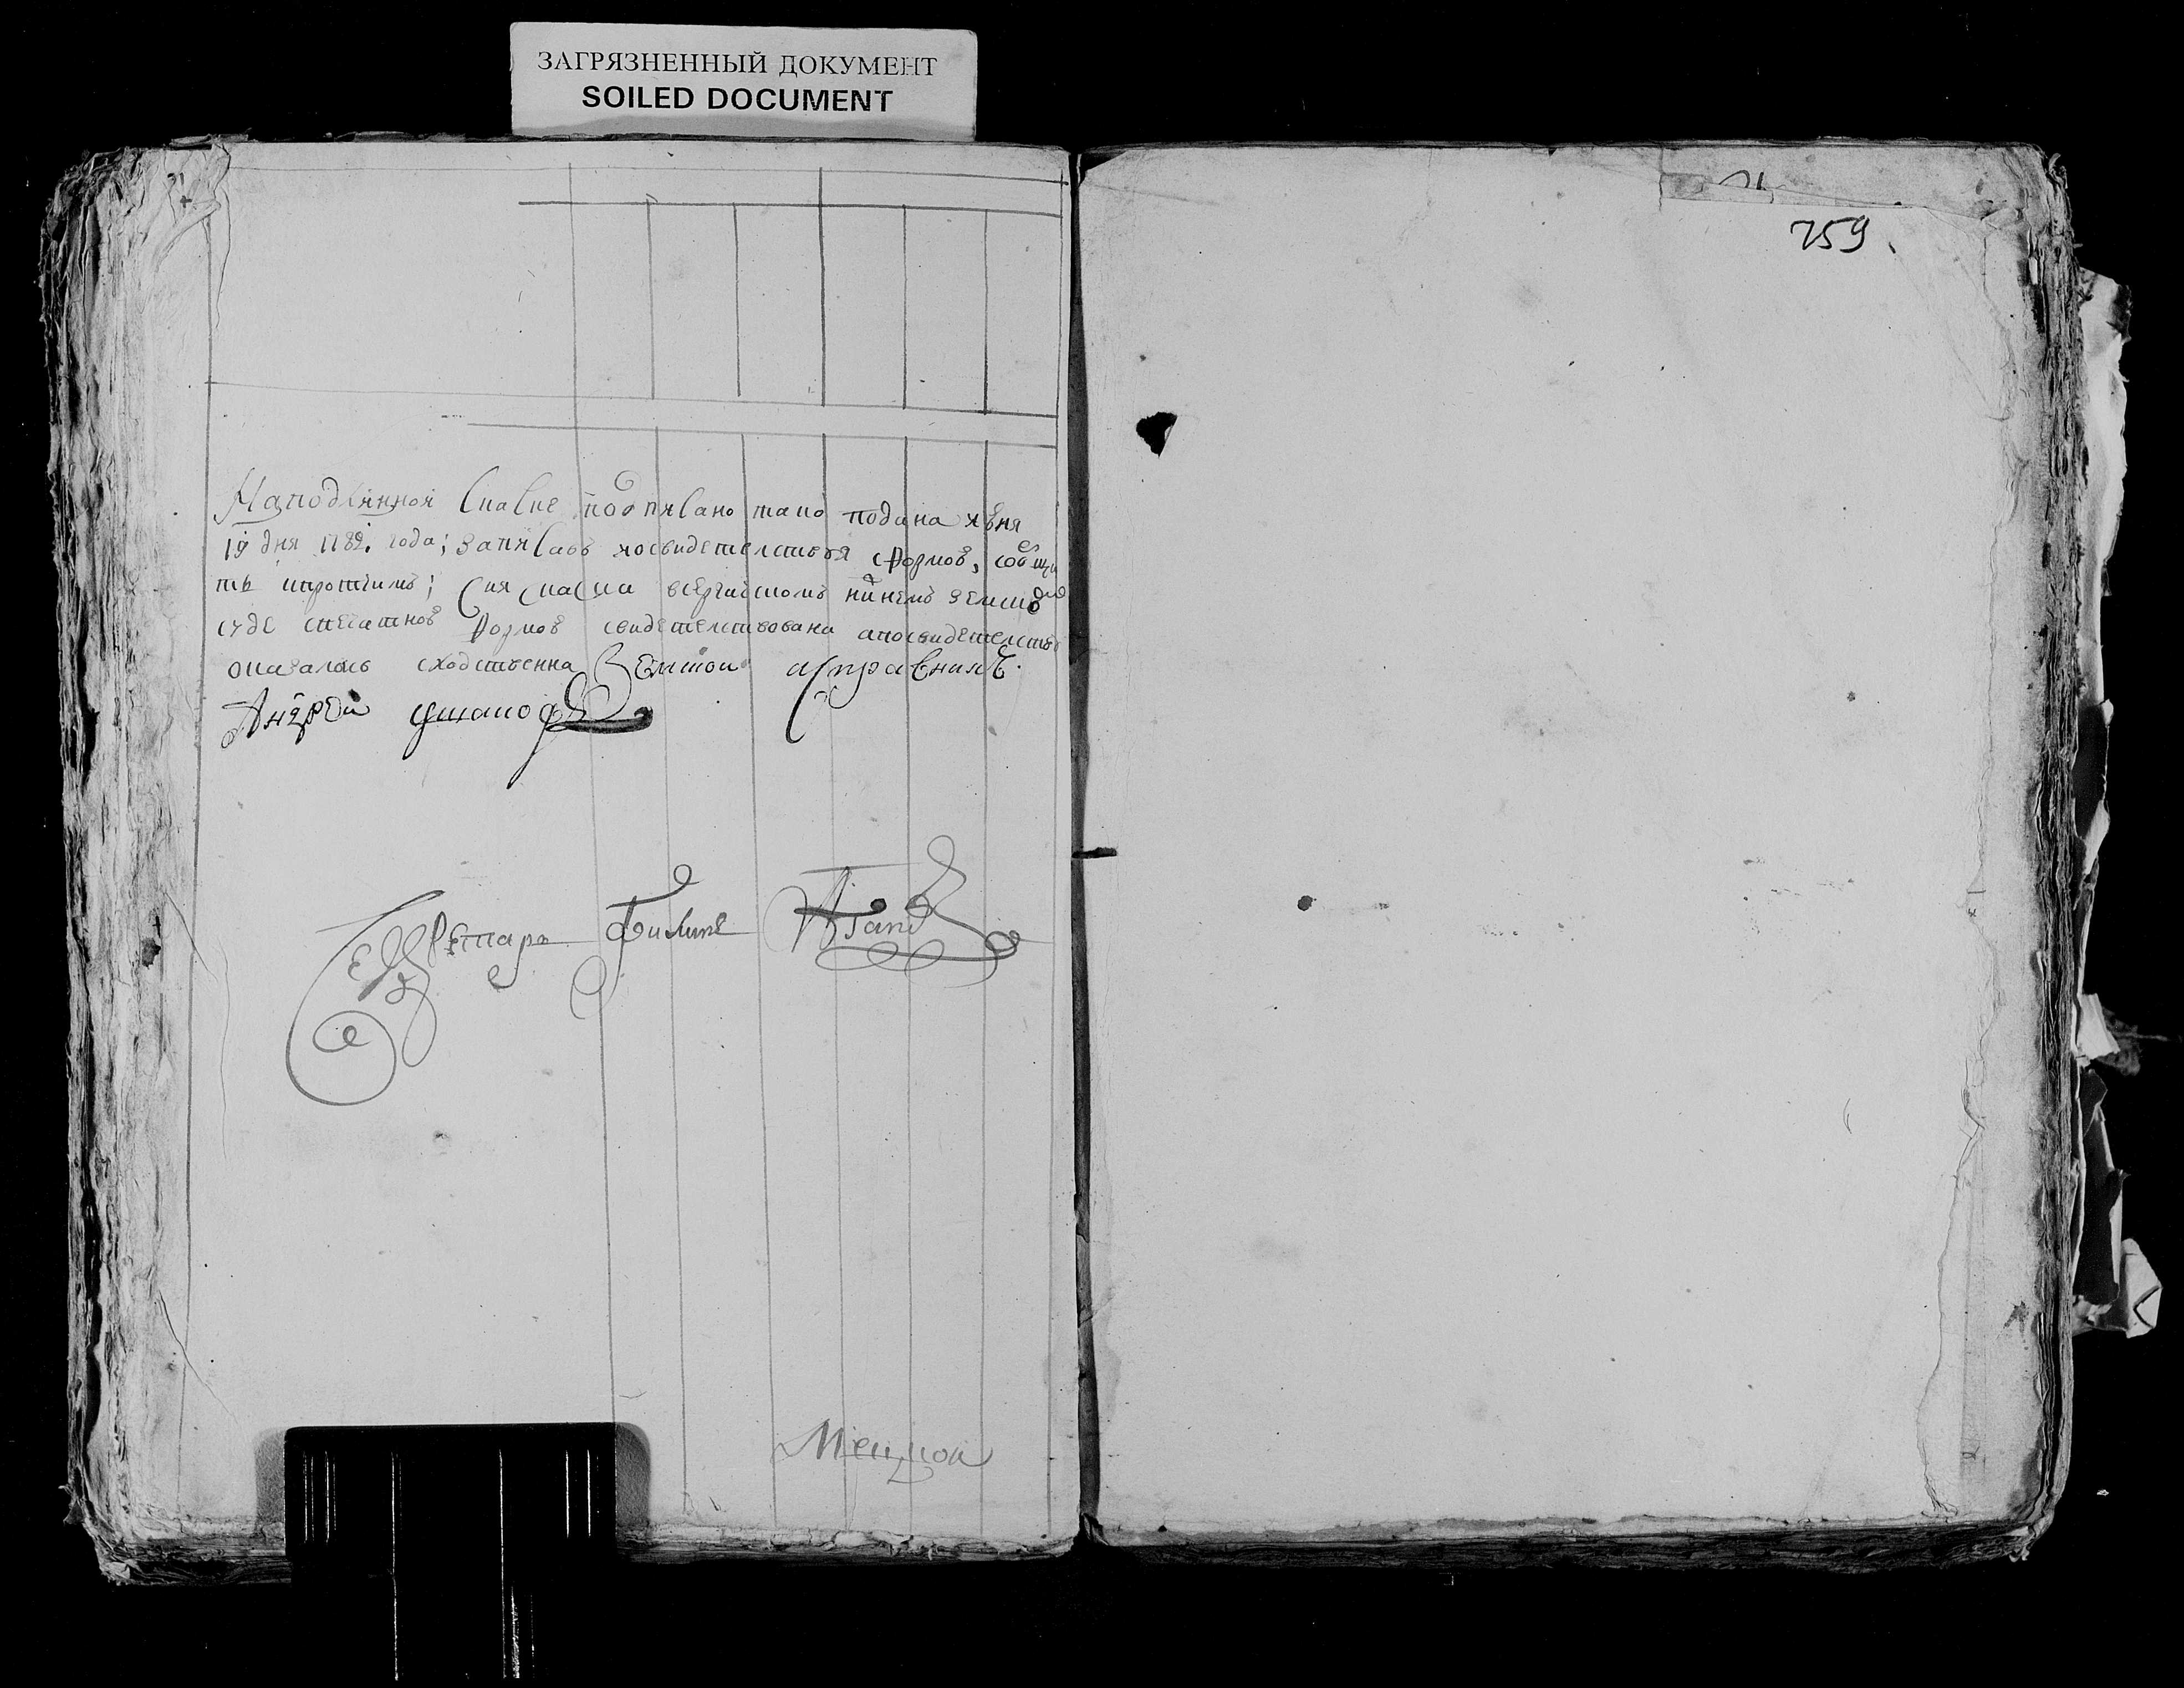 ЗАГРЯЗНЕННЫЙ ДОКУМЕНТ
SOILED DOCUMENT
759
Наподлинной скаске подписано тако подана июня
19 дня 1782 года; записавъ посвидетелствуя сформою, сообщи
ть
Сия скаска всергачскомъ нижнемъ земскомъ
суде формою свидетелствована апосвидетелству
оказалась сходственна Земской исправникъ
Андреи ушаковъ
Секретарь Филипъ